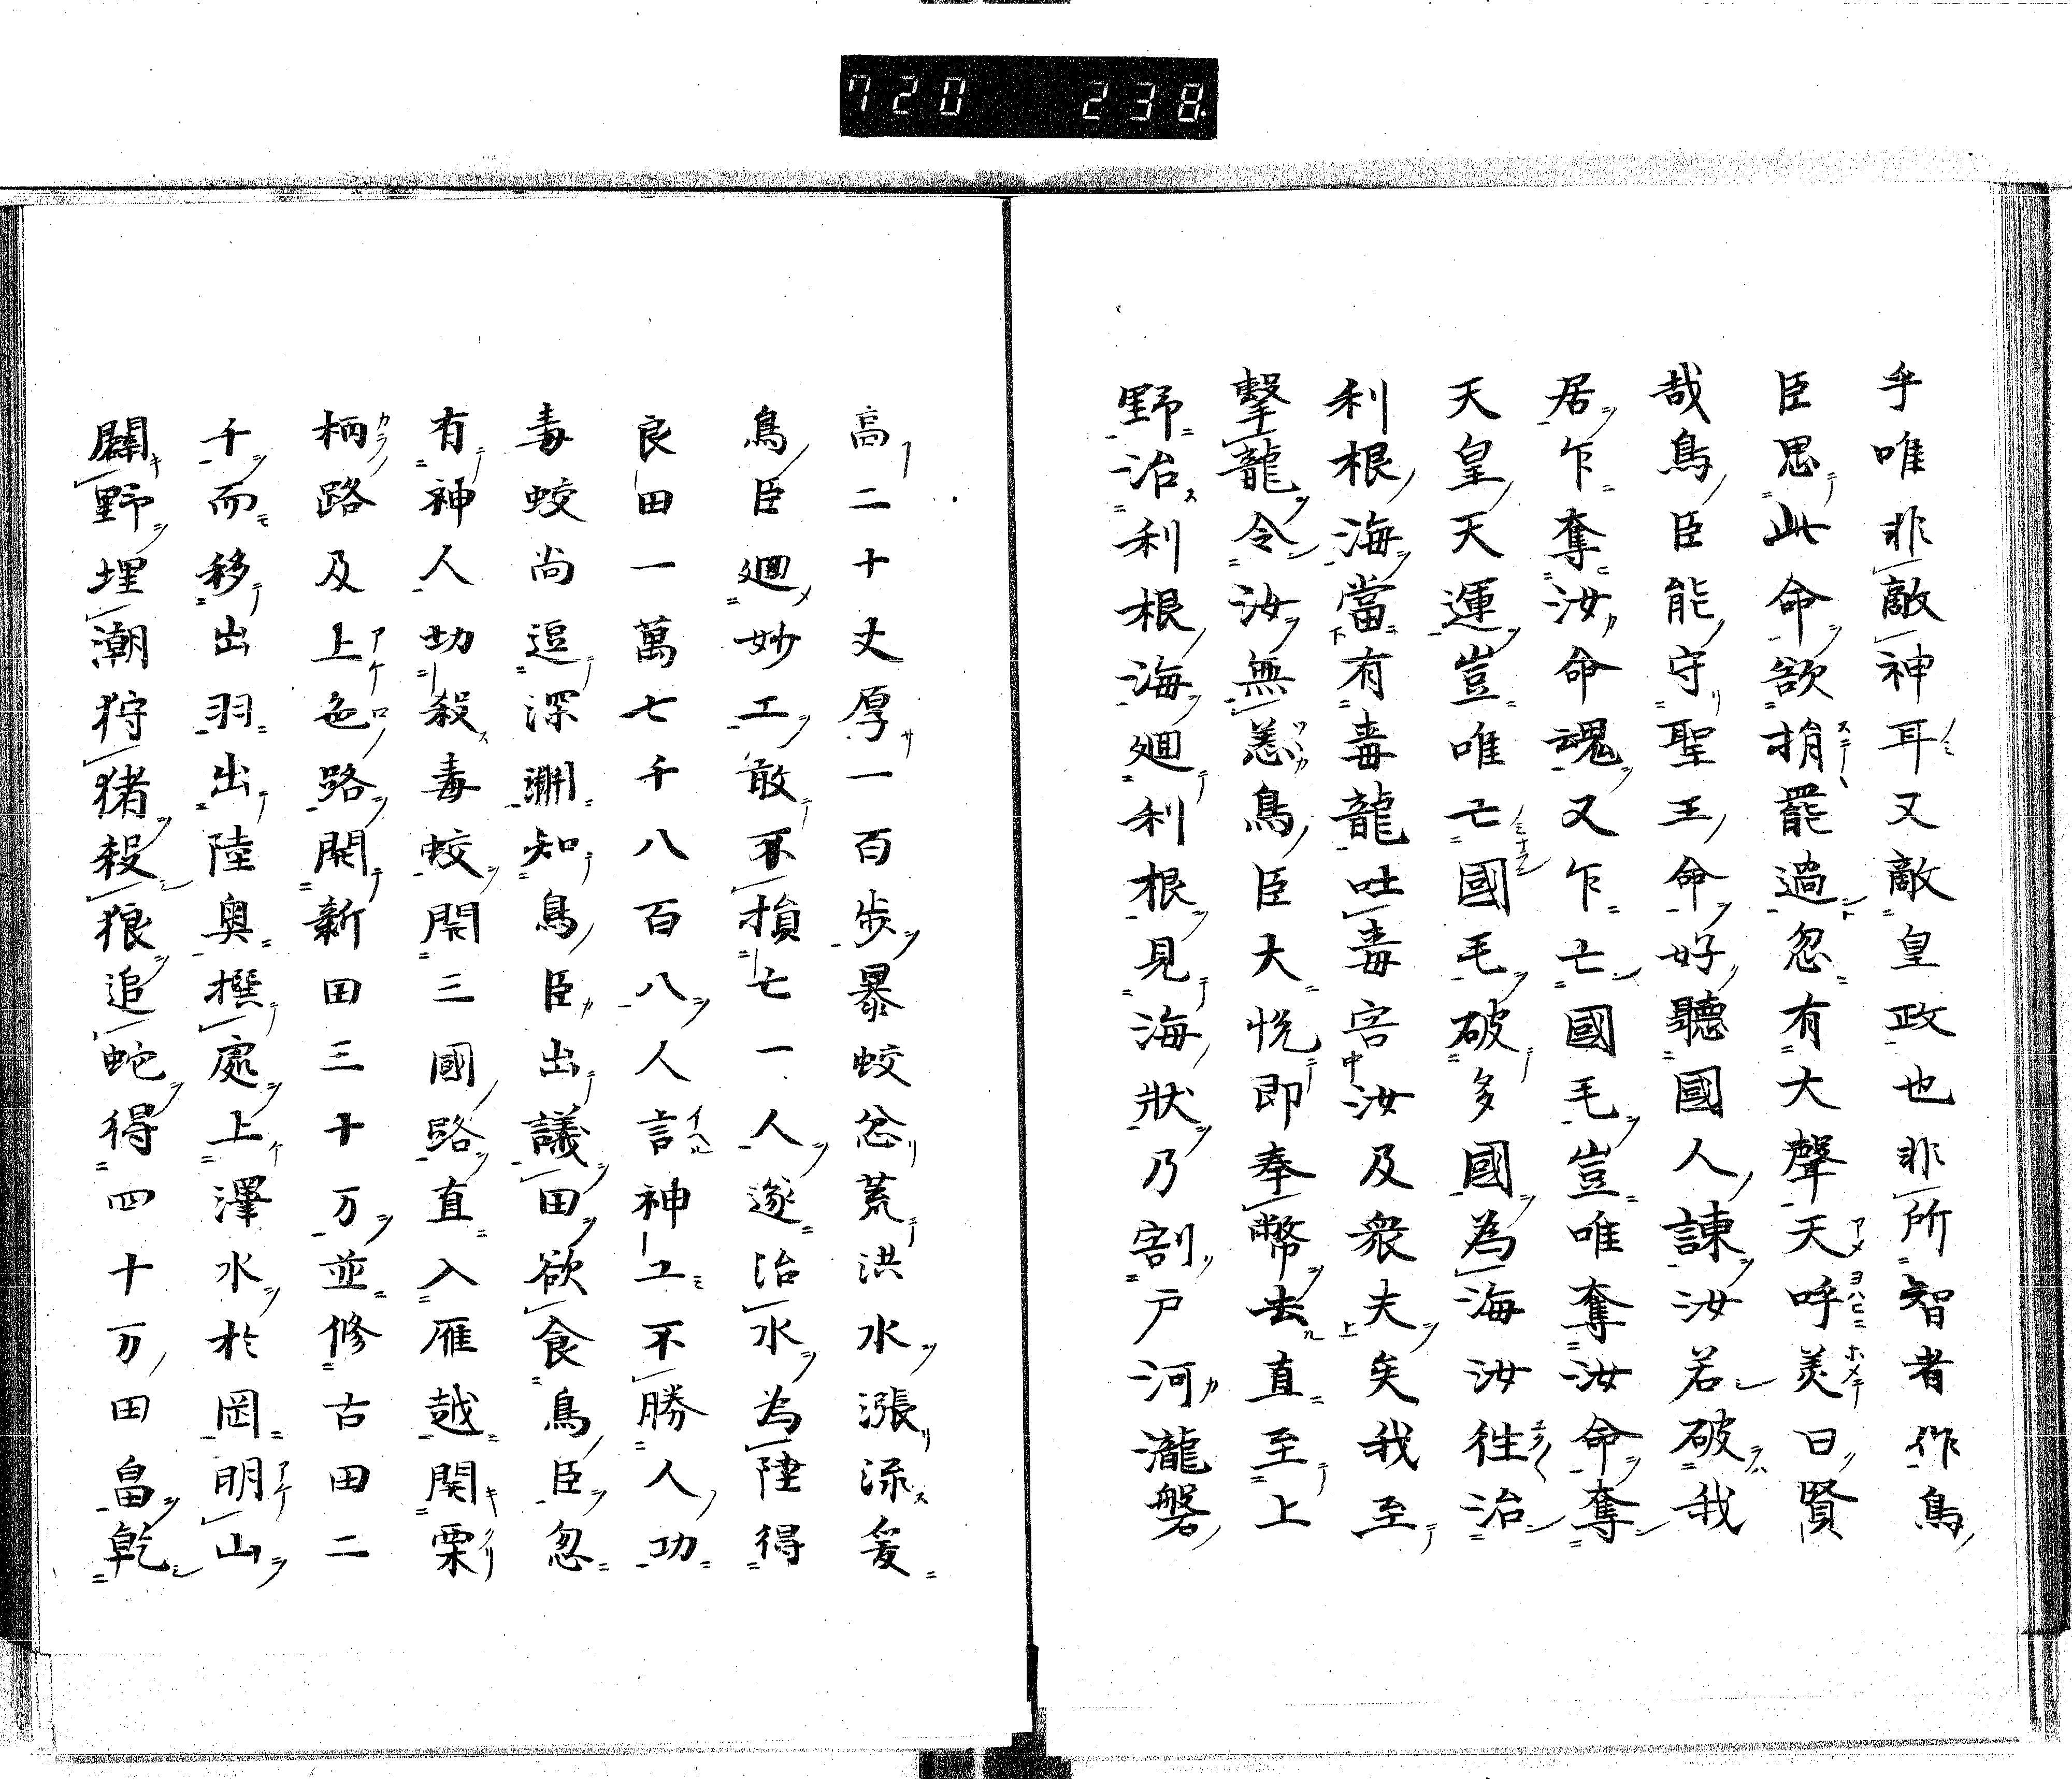 720 238
乎唯非敵神耳又敵皇政也非所智者作鳥
臣思此命欲捐罷過忽有大聲天呼美曰賢
哉鳥臣能守聖王命好聽國人諌汝若破我
居乍奪汝命魂又乍亡國毛豈唯奪汝命奪
天皇天運豈唯亡國毛破多國為海汝往治
利根海當有毒龍吐毒害汝及衆夫矣我至
擊龍令汝無恙鳥臣大悅即奉幣去直至上
野治利根海廻利根見海狀乃割戸河瀧磐
高二十丈厚一百歩暴蛟忿荒洪水漲深爰
鳥臣廻妙工敢不損亡一人遂治水為陸得
良田一萬七千八百八人言神工不勝人功
毒蛟尚逗深淵知鳥臣出議田欲食鳥臣忽
有神人功殺毒蛟開三國路直入雁越開栗
柄路及上色路開新田三十万並修古田二
千而移出羽出陸奥撰處上澤水於岡明山
闢野埋潮狩猪殺狼追蛇得四十万田畠乾